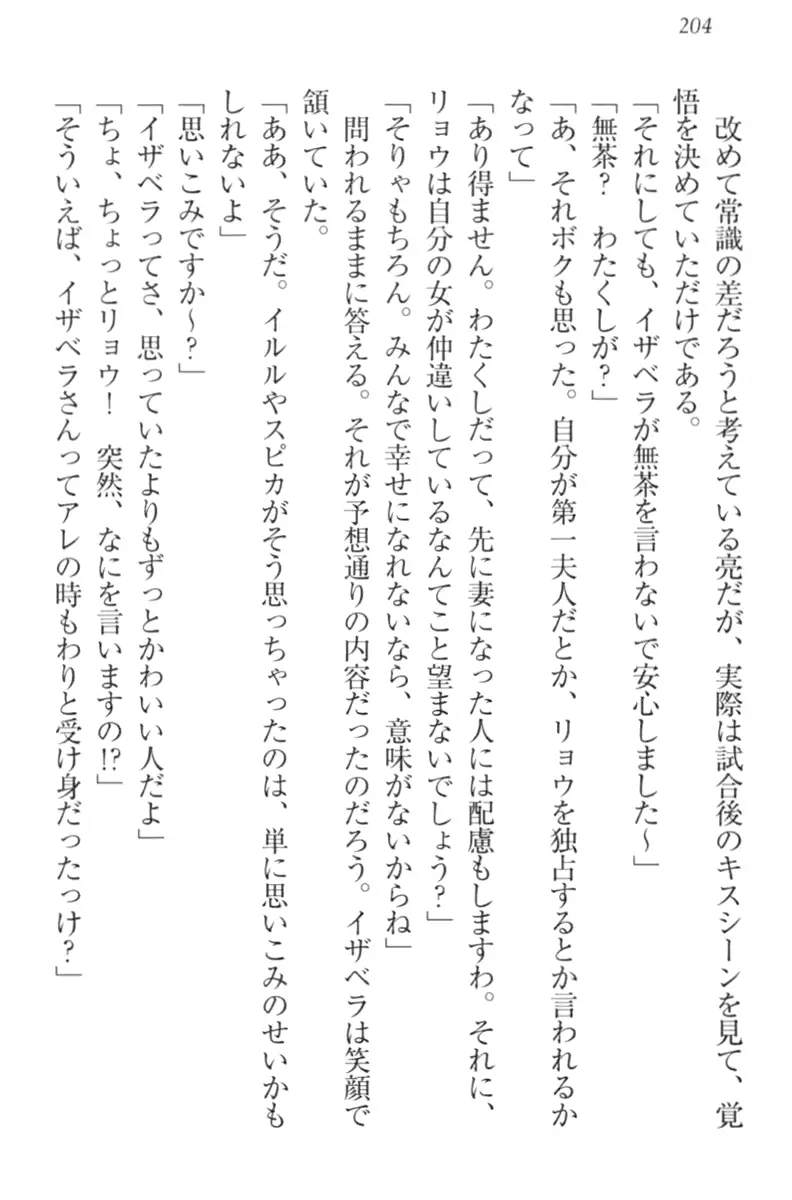 204
改めて常識の差だろうと考えている亮だが、実際は試合後のキスシーンを見て、覚
悟を決めていただけである。
「それにしても、イザベラが無茶を言わないで安心しました～」
「無茶？　わたくしが？」
「あ、それボクも思った。自分が第一夫人だとか、リョウを独占するとか言われるか
なって」
「あり得ません。わたくしだって、先に妻になった人には配慮もしますわ。それに、
リョウは自分の女が仲違いしているなんてこと望まないでしょう？」
「そりゃもちろん。みんなで幸せになれないなら、意味がないからね」
問われるままに答える。それが予想通りの内容だったのだろう。イザベラは笑顔で
頷いていた。
「ああ、そうだ。イルルやスピカがそう思っちゃったのは、単に思いこみのせいかも
しれないよ」
「思いこみですか～？」
「イザベラってさ、思っていたよりもずっとかわいい人だよ」
「ちょ、ちょっとリョウ！　突然、なにを言いますの!?」
「そういえば、イザベラさんってアレの時もわりと受け身だったっけ？」